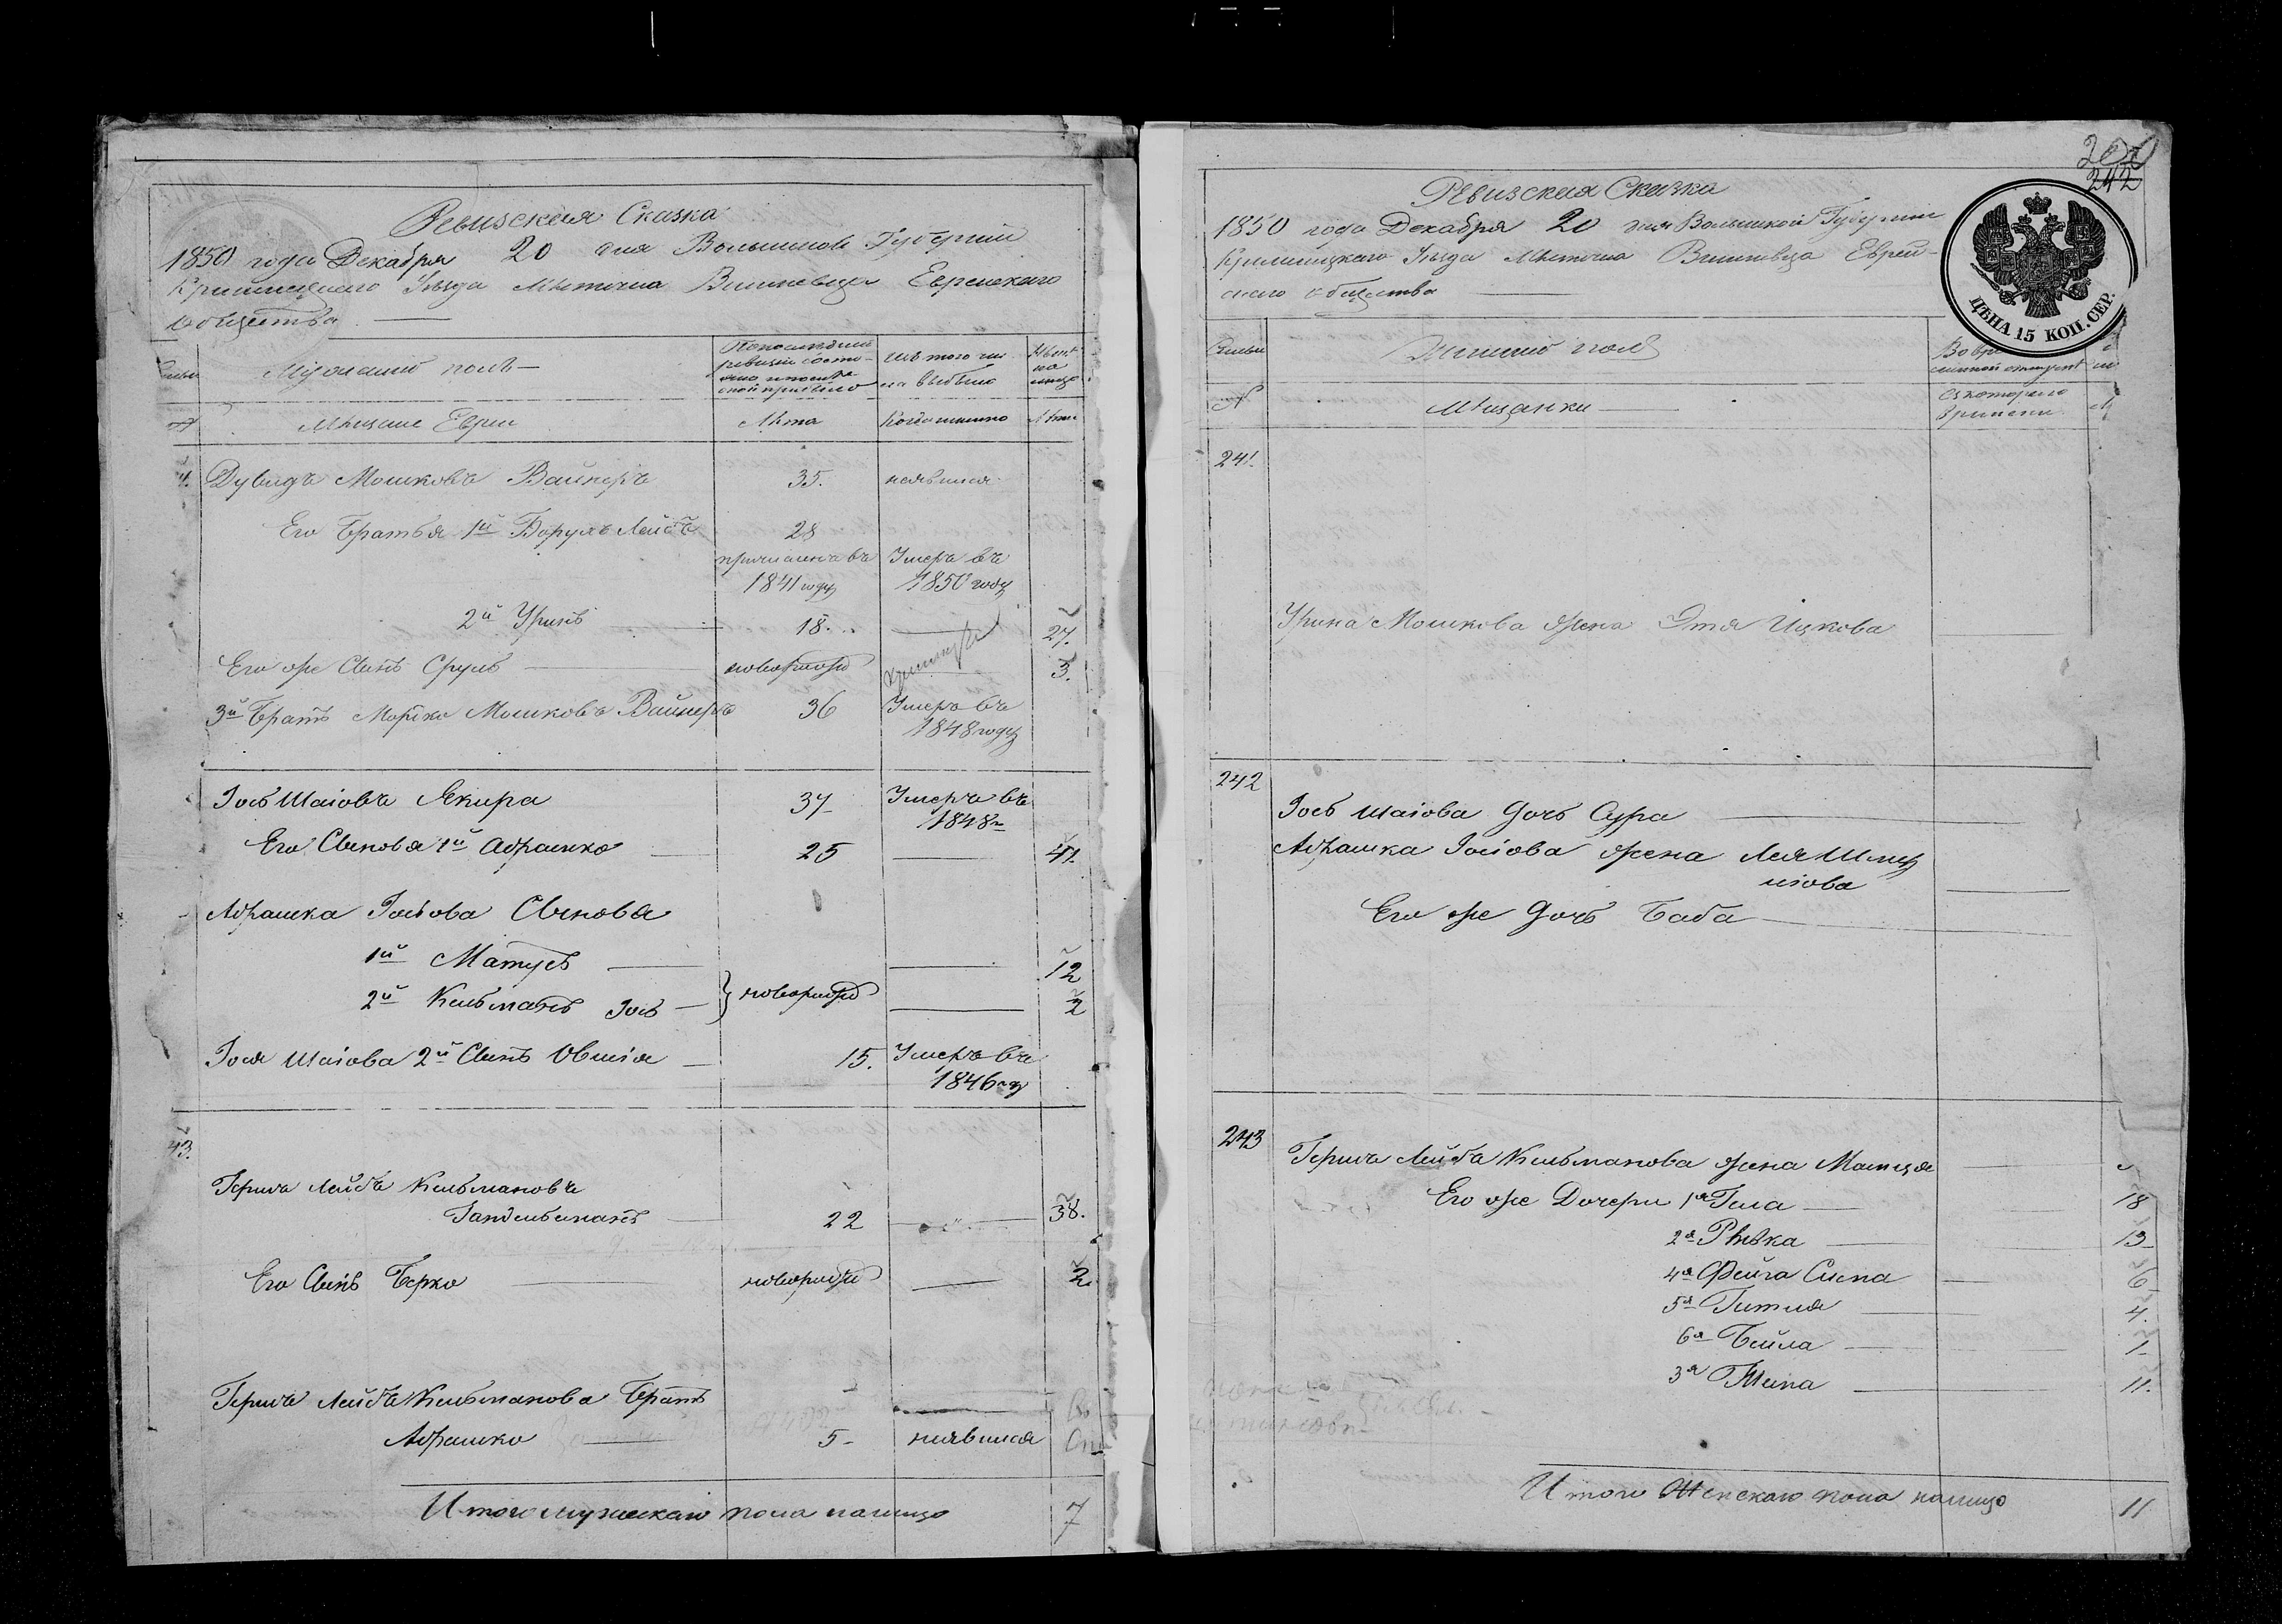 Ревизская Сказка
1850 года Декабря 20 дня Волынской Губернии
Кременецкого Уезда Местечка Вишневца Еврейского
Общества
Мужеский полъ
По последней
ревизии состо-
изъ того чи
сла выбыло
Мещане Евреи
Лета
Когда именно
Лета
Дувидъ Мошковъ Вайнеръ 35. неявился
Его Братья 1й Борухъ Лейбъ 28
причисленъ въ Умеръ въ
1841 году 1850 году
2й Уринъ 18. 27.
Его же Сынъ Сруль новорожд 3.
3й Братъ Мошко Мошковъ Вайнеръ 36 Умеръ въ
1848 году
Іось Шаіовъ Якира 37 Умеръ въ
1848 г
Его Сыновья 1й Абрашко 25 41.
Абрашка Іосьова Сыновья
1й Матусъ 12
2й Кельманъ Іось новорожд 2
Іося Шаіова 2й Сынъ Овшія 15. Умеръ въ
1846 году
43.
Гершъ Лейба Кельмановъ
Зандельманъ 22 38.
Его Сынъ Берко новорожд 2.
Гершъ Лейба Кельманова Братъ
Абрашко 5 неявился
Итого мужескаго пола налицо 7
207
242
Ревизская Сказка
1850 года Декабря 20 дня Волынской Губернии
Кременецкаго Уезда Местечка Вишневца Еврей-
скаго общества
ЦѢНА 15 КОП. СЕР.
Семьи
Женский полъ
№
Мещанки
Съ котораго
времени
241.
Урина Мошкова жена Этя Ицкова
242
Іось Шаіова дочь Сура
Абрашка Іосіова жена Лея Шму
ліова
Его же дочь Баба
243
Гершъ Лейба Кельманова жена Матля
Его же Дочери 1я Гела 18
2я Ривка 13
4я Фейга Сима 6
5я Гитля 4.
6я Бейла 1
3я 11.
Итого Женскаго пола налицо 11